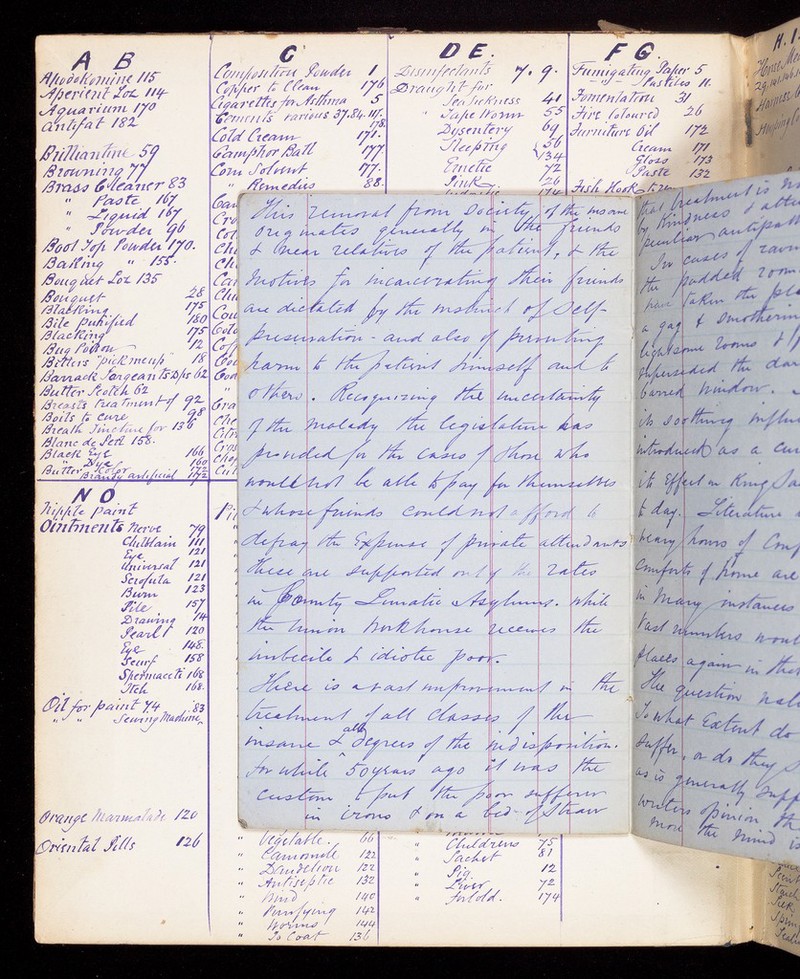 A B
Apodokomine 115
Aperient Loz 114
Aquarium 170
Antifat 182
Brilliantine 59
Browning 77
Brass Cleaner 83
" Paste 167
" Liquid 167
" Powder 96
Boot Top Powder 170.
Baking " 155.
Bouquet Loz 135
Bouquet 28
Blacking 175
Bile purified 180
Blacking 175
Bug Poison 12
Bitters "pick me up" 18
Barrack Sargeants Dps 62
Butter Scotch 62
Breasts treatment of 92
Boils to cure 98
Breath Tincture for 136
Blanc de Perl 158.
Black Eye 166
" Dye 160
Butter Color 172
Brandy artificial 172
C
Composition Powder 1
Copper to Clean 176
Cigarettes for Asthma 5
Cements various 37.84.111.
178.
Cold Cream 171.
Camphor Ball 177
Corn Solvent 177.
" Remedies 88.
D E.
Disinfectants 7. 9.
Draught for
" Sea Sickness 41
" Tape Worm 55
Dysentery 69
Sleeping 56
134
Emetic 72
Pink 26
F G.
Fumigating Paper 5
" Pastiles 11.
Fomentation 31
Fire Coloured 26
Furniture Oil 172
Cream 171
Gloss 173
Paste 132
Fish Hook
H. I.
N O
Nipple paint
Ointments Nerve 79
Chilblain 111
Eye 121
Universal 121
Scrofula 121
Burn 123
Pile 157
Drawing 14
Pearl 120
Eye 148.
Scurf 158
Spermaceti 168
Itch 168.
Oil for paint 74 83
" " Sewing Machine
Orange Marmalade 120
Oriental Pills 126
This removal from Society, of the insane
originates generally in the friends
& near relatives of the patient, & the
motives for incarcerating their friends
are dictated by the instinct of self-
preservation - and also of preventing
harm to the patient himself and to
others. Recognizing the uncertainty
of the malady the legislature has
provided for the cases of those who
would not be able to pay for themselves
& whose friends could not afford to
defray the Expense of private attendants
these are supported out of the rates
in County Lunatic Asylums. While
the Union Workhouse receives the
imbecile & idiotic poor.
There is a vast improvement in the
treatment of all classes of the
insane & all degrees of the indisposition.
for while 50 years ago it was the
custom to put the poor sufferer
in irons & on a bed of Straw
that treatment is
by Kindness &
peculiar
In cases of
the padded room
have taken the
a gag & smothering
lightsome rooms &
superseded the
barred window.
its soothing
introduced as a
its Effect on King
to day. Literature
weary hours of
Comforts of home are
in many instances
Vast numbers
places again in
The question
To what Extent do
suffer, or do they
as is generally
writers opinion
more the mind is
" Vegetable. 66
" Camomile 122
" Dandelion 122
" Antiseptic 132
" Wind 140
" Purifying 142
" Worms 144
" To Coat 136
" Childrens 75
" Sachet 81
" Pig. 12
" Liver 72
" For Cold. 174